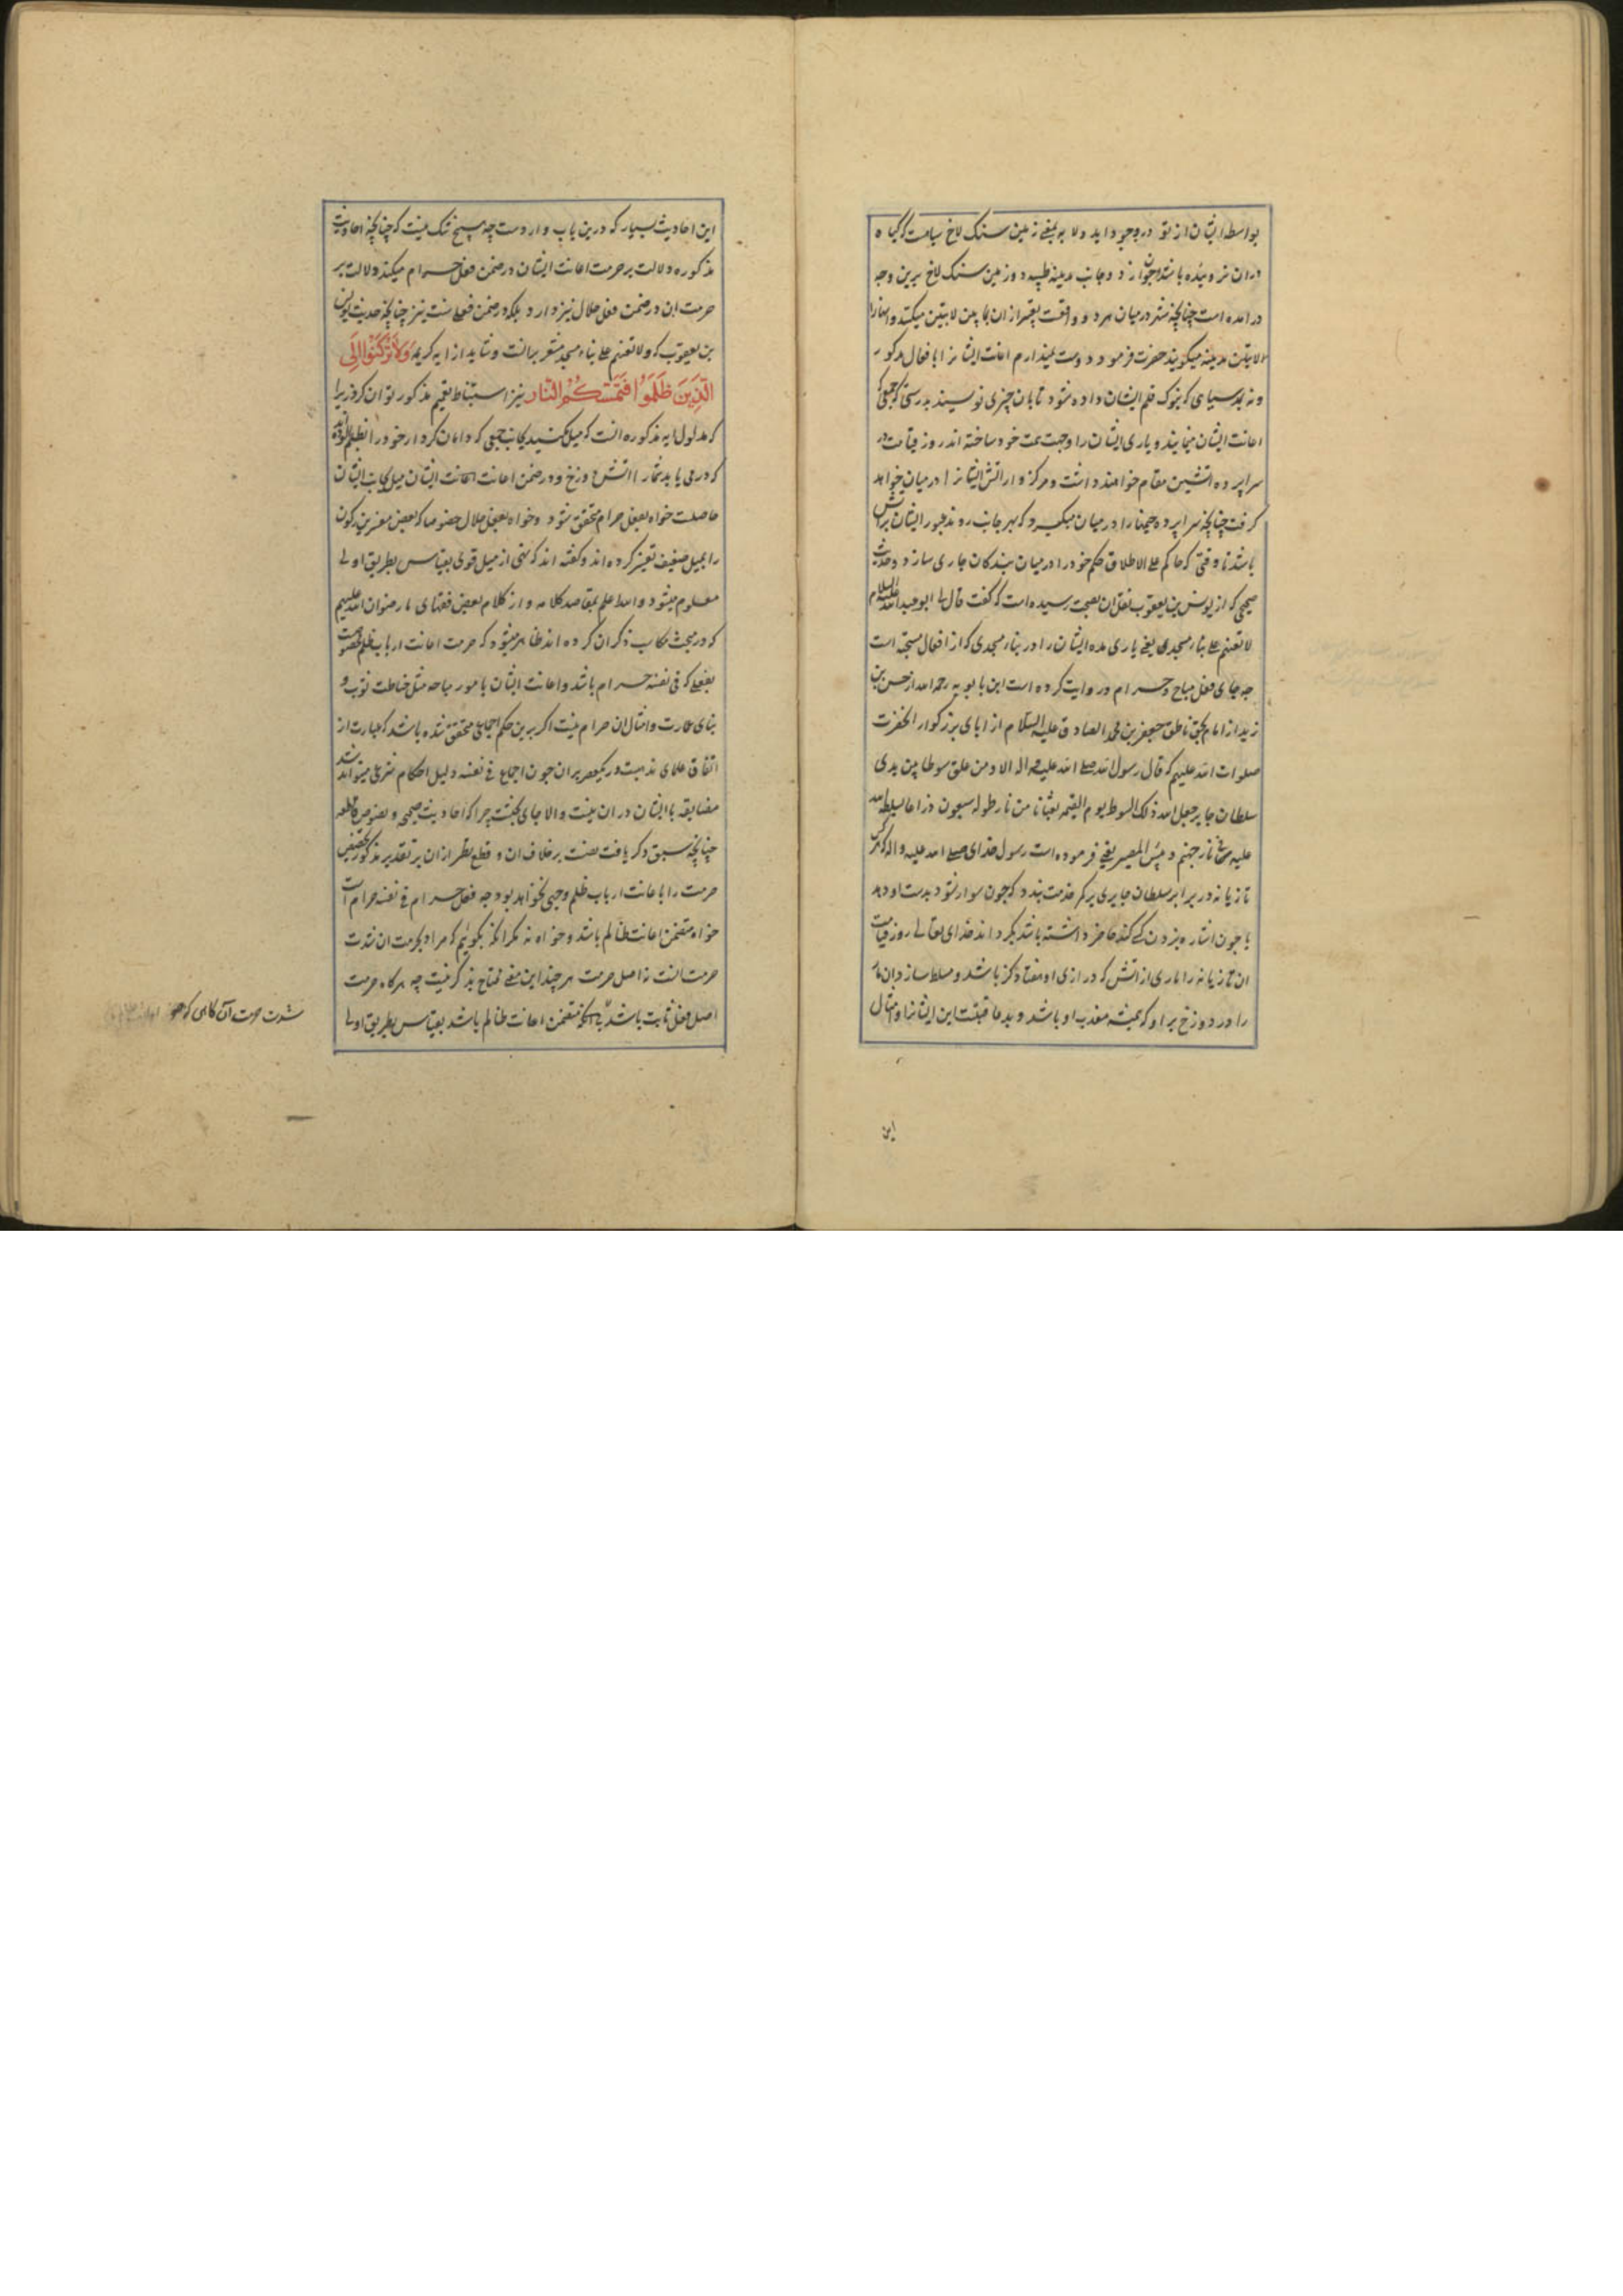 بواسطه ایشان از تو در وجود اید و لا به یعنی زمین سنک لاخ سیاهست که کیاه
دران نروئیده باشد و از دو جانب مدینه طیبه دو زمین سنک لاخ برین وجه
در امده است چنانچه شهر در میان هر دو واقعست تعبیر از ان بما بین لابتین میکنند و انها را
لابتین مدینه میکویند حضرت فرمود دوست نمیدارم اعانت ایشانرا بافعال مذکور
و نه بمد سیاهی که بنوک قلم ایشان داده شود تا بان چیزی نویسند بدرستی که جمعی که
اعانت ایشان مینمایند و یاری ایشان را وجهت همت خود ساخته اند روز قیامت در
سراپرده اتشین مقام خواهند داشت و مرکز وار اتش ایشانرا در میان خواهد
کرفت چنانچه سراپرده خیمها را در میان میکیرد که بهر جانب روند عبور ایشان بر اتش
باشد تا وقتی که حاکم علی الاطلاق حکم خود را در میان بندکان جاری سازد و حدیث
صحیحی که از یونس بن یعقوب نقل ان بصحت رسیده است که کفت قال لی ابو عبدالله علیه السلام
لا تعنهم علی بناء مسجد یعنی یاری مده ایشان را در بناء مسجدی که از افعال مستحبه است
چه جای فعل مباح و حرام و روایت کرده است ابن بابویه رحمه الله از حسن بن
زید از امام بحق ناطق جعفر بن محمد الصادق علیه السلام از ابای بزرکوار انحضرت
صلوات الله علیهم که قال رسول الله صلی الله علیه و اله الا و من علق سوطا بین یدی
سلطان جایر جعل الله ذلک السوط یوم القیمه ثعبانا من نار طوله سبعون ذراعا یسلطه الله
علیه فی نار جهنم و بئس المصیر یعنی فرموده است رسول خدای صلی الله علیه و اله که هر کس
تازیانه در برابر سلطان جایری بر کمر خدمت بندد که چون سوار شود بدست او دهد
یا چون اشاره بزدن کسی کند حاضر داشته باشد بکرداند خدای تعالی روز قیامت
ان تازیانه را ماری از اتش که درازی او هفتاد کز باشد و مسلط سازد ان مار
را در دوزخ بر او که همیشه معذب او باشد و بد عاقبتست این ایشانرا و امثال
این
این احادیث بسیار که درین باب واردست چه هیچ شک نیست که چنانچه احادیث
مذکوره دلالت بر حرمت اعانت ایشان در ضمن فعل حرام میکند دلالت بر
حرمت ان در ضمن فعل حلال نیز دارد بلکه در ضمن فعل سنت نیز چنانچه حدیث یونس
بن یعقوب که و لا تعنهم علی بناء مسجد مشعر بدانست و شاید از ایه کریمه وَلَا تَرْكَنُوا إِلَى
الَّذِينَ ظَلَمُوا فَتَمَسَّكُمُ النَّارُ نیز استنباط تعمیم مذکور توان کرد زیرا
که مدلول ایه مذکوره انست که میل مکنید بجانب جمعی که دامان کردار خود را بظلم الوده اند
که درمی یابد شما را اتش دوزخ و در ضمن اعانت ایشان میل بجانب ایشان
حاصلست خواه بفعل حرام متحقق شود و خواه بفعل حلال خصوصا که بعض مفسرین رکون
را بمیل ضعیف تفسیر کرده اند و کفته اند که نهی از میل قوی بقیاس بطریق اولی
معلوم میشود و الله اعلم بمقاصد کلامه و از کلام بعض فقهای ما رضوان الله علیهم
که در مبحث مکاسب ذکر ان کرده اند ظاهر میشود که حرمت اعانت ارباب ظلم مخصوصست
بفعلی که فی نفسه حرام باشد و اعانت ایشان بامور مباحه مثل خیاطت ثوب و
بنای عمارت و امثال ان حرام نیست اکر برین حکم اجماعی متحقق شده باشد که عبارت از
اتفاق علمای مذهبست در یکعصر بران چون اجماع فی نفسه دلیل احکام شرعی میتواند شد
مضایقه با ایشان در ان نیست و الا جای بحثست چرا که احادیث صحیحی و نصوص قاطعه
چنانچه سبق ذکر یافت نصست بر خلاف ان و قطع نظر از ان بر تقدیر مذکور تخصیص
حرمت را باعانت ارباب ظلم وجهی نخواهد بود چه فعل حرام فی نفسه حرام است
خواه متضمن اعانت ظالم باشد و خواه نه مکر انکه بکوئیم که مراد بحرمت ان شدت
حرمت انست نه اصل حرمت هر چند این معنی محتاج بذکر نیست چه هرکاه حرمت
اصل فعل ثابت باشد با انکه متضمن اعانت ظالم باشد بقیاس بطریق اولی
شدت حرمت آن کاهی که